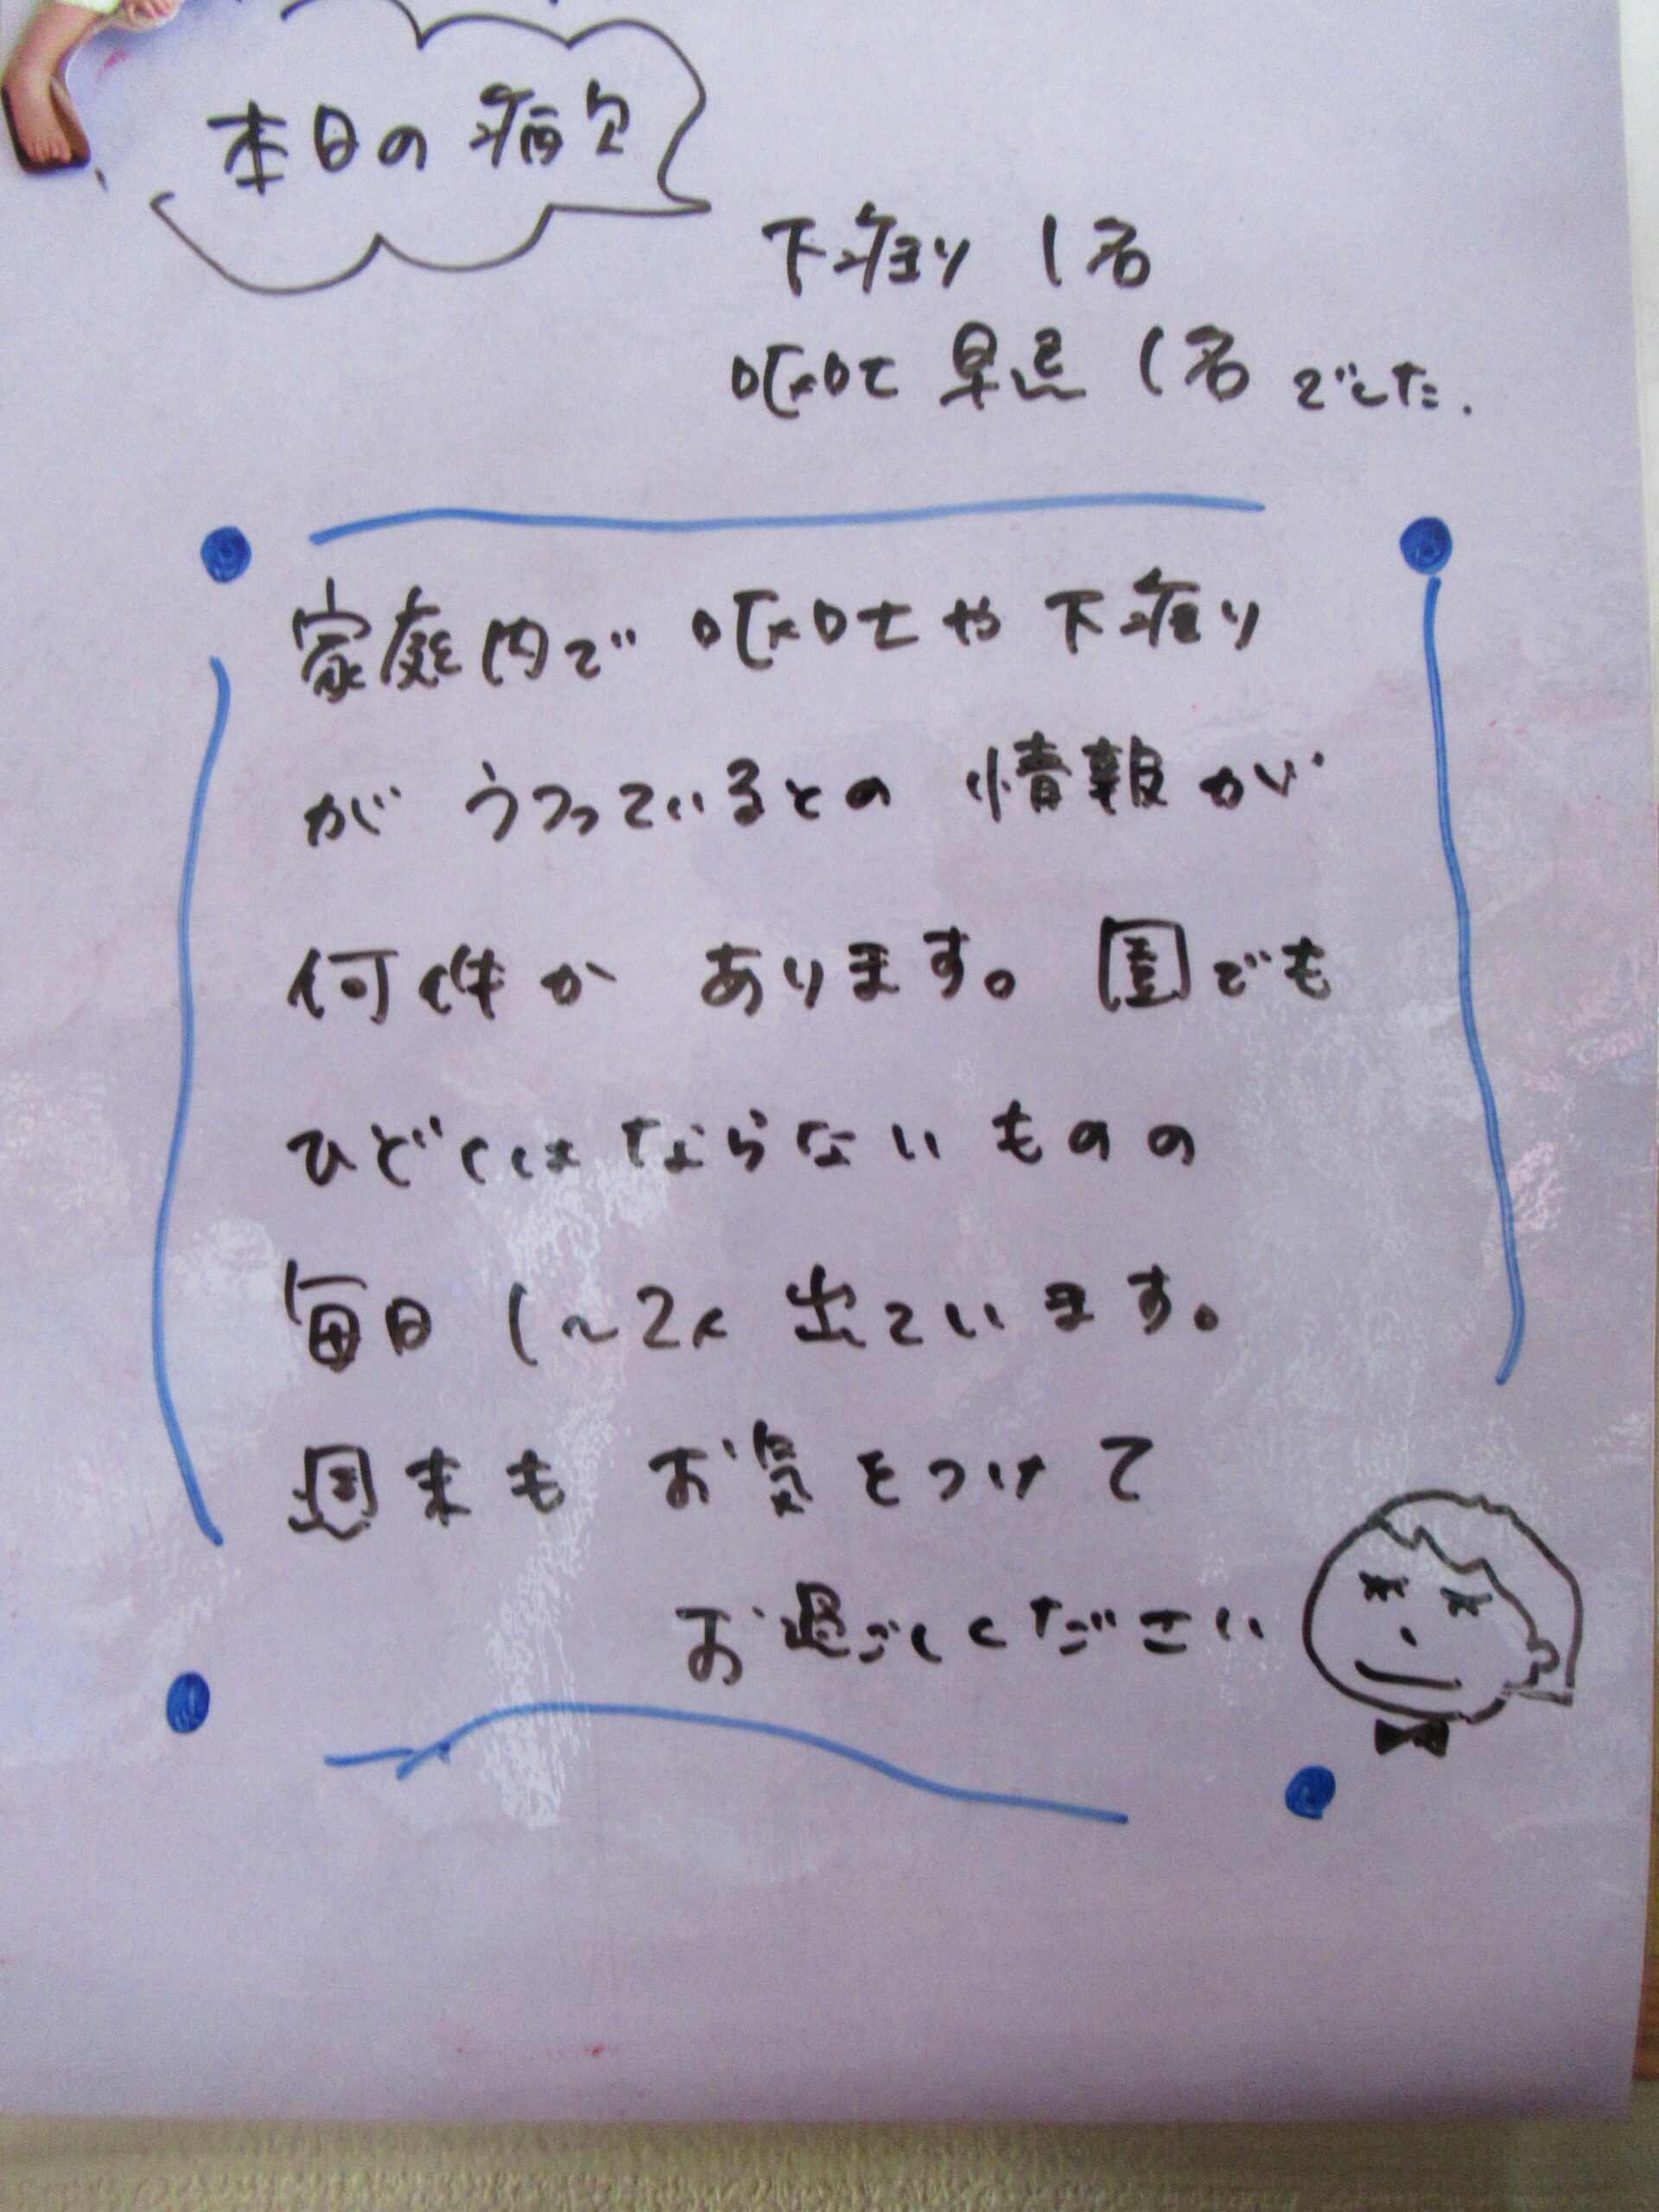 本日の病欠
下痢り 1名
嘔吐 早退 1名 でした.
家庭内で 嘔吐や下痢り
が うつっているとの 情報が
何件か あります。園でも
ひどくはならないものの
毎日 1~2人 出ています。
週末も お気をつけて
お過ごしください